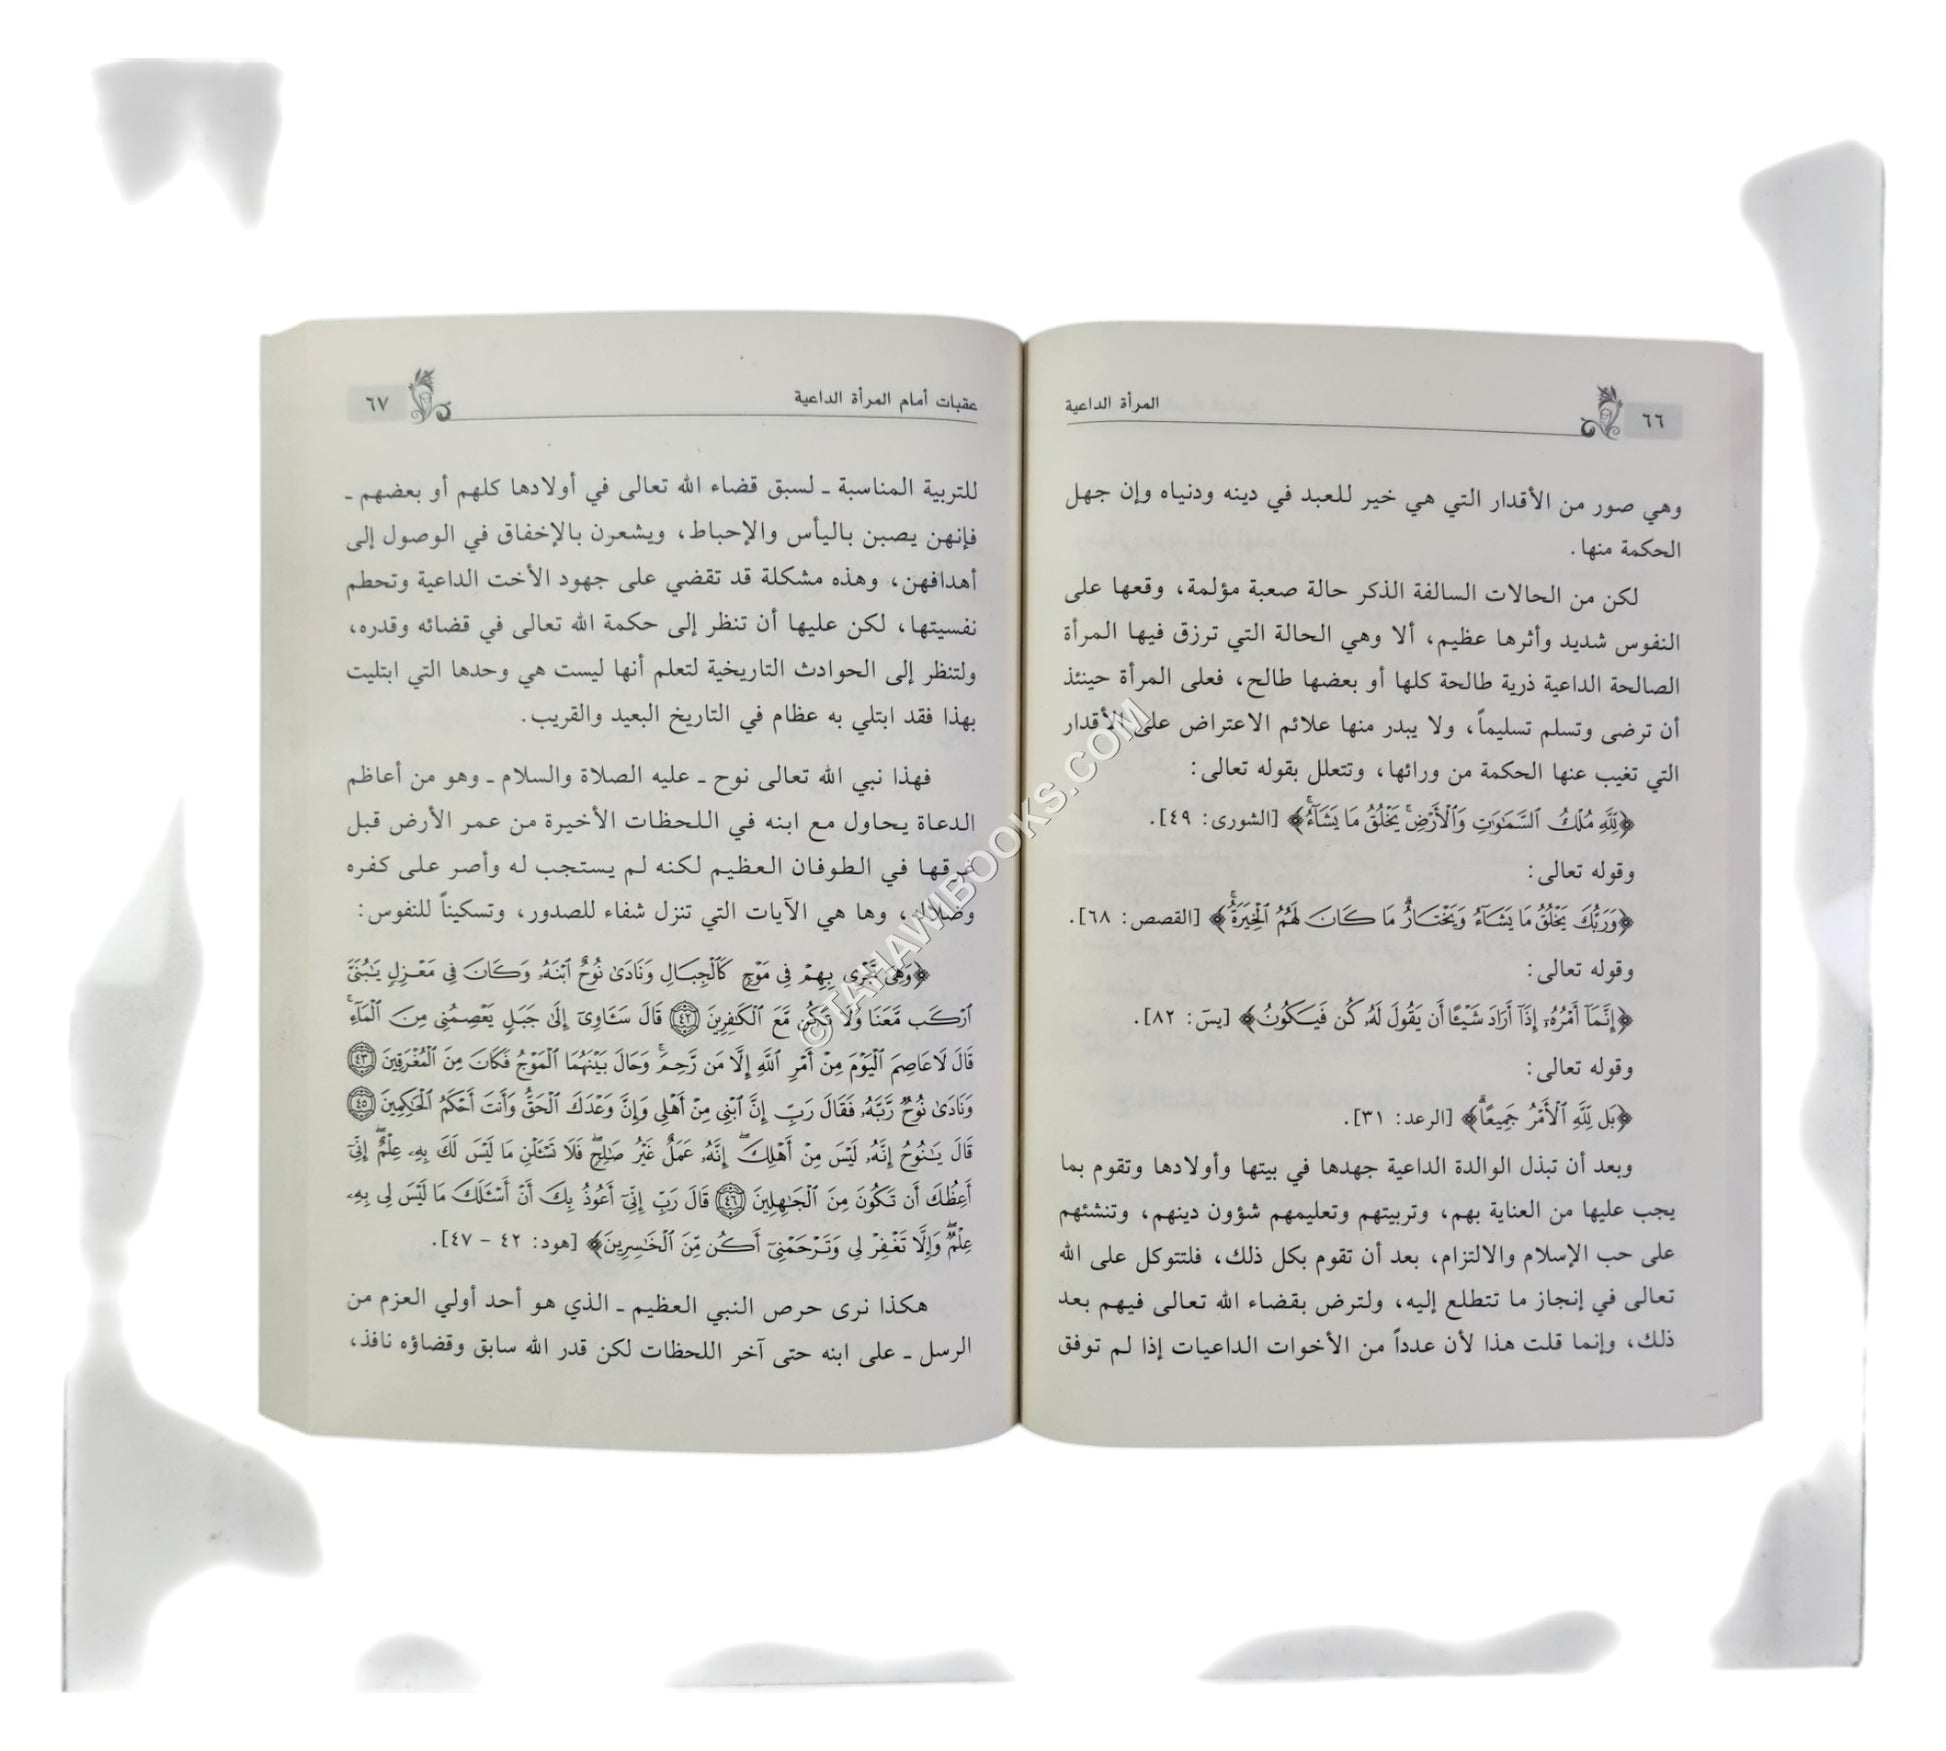 ٦٦
المرأة الداعية
وهي صور من الأقدار التي هي خير للعبد في دينه ودنياه وإن جهل
الحكمة منها.
لكن من الحالات السالفة الذكر حالة صعبة مؤلمة، وقعها على
النفوس شديد وأثرها عظيم، ألا وهي الحالة التي ترزق فيها المرأة
الصالحة الداعية ذرية طالحة كلها أو بعضها طالح، فعلى المرأة حينئذ
أن ترضى وتسلم تسليماً، ولا يبدر منها علائم الاعتراض على الأقدار
التي تغيب عنها الحكمة من ورائها، وتتعلل بقوله تعالى:
﴿لِلَّهِ مُلْكُ ٱلسَّمَٰوَٰتِ وَٱلْأَرْضِ ۚ يَخْلُقُ مَا يَشَآءُ ۚ﴾ [الشورى: ٤٩].
وقوله تعالى:
﴿وَرَبُّكَ يَخْلُقُ مَا يَشَآءُ وَيَخْتَارُ ۗ مَا كَانَ لَهُمُ ٱلْخِيَرَةُ ۚ﴾ [القصص: ٦٨].
وقوله تعالى:
﴿إِنَّمَآ أَمْرُهُۥٓ إِذَآ أَرَادَ شَيْـًٔا أَن يَقُولَ لَهُۥ كُن فَيَكُونُ﴾ [يسَ: ٨٢].
وقوله تعالى:
﴿بَل لِّلَّهِ ٱلْأَمْرُ جَمِيعًا ۗ﴾ [الرعد: ٣١].
وبعد أن تبذل الوالدة الداعية جهدها في بيتها وأولادها وتقوم بما
يجب عليها من العناية بهم، وتربيتهم وتعليمهم شؤون دينهم، وتنشئهم
على حب الإسلام والالتزام، بعد أن تقوم بكل ذلك، فلتتوكل على الله
تعالى في إنجاز ما تتطلع إليه، ولترض بقضاء الله تعالى فيهم بعد
ذلك، وإنما قلت هذا لأن عدداً من الأخوات الداعيات إذا لم توفق
عقبات أمام المرأة الداعية
٦٧
للتربية المناسبة ـ لسبق قضاء الله تعالى في أولادها كلهم أو بعضهم ـ
فإنهن يصبن باليأس والإحباط، ويشعرن بالإخفاق في الوصول إلى
أهدافهن، وهذه مشكلة قد تقضي على جهود الأخت الداعية وتحطم
نفسيتها، لكن عليها أن تنظر إلى حكمة الله تعالى في قضائه وقدره،
ولتنظر إلى الحوادث التاريخية لتعلم أنها ليست هي وحدها التي ابتليت
بهذا فقد ابتلي به عظام في التاريخ البعيد والقريب.
فهذا نبي الله تعالى نوح ـ عليه الصلاة والسلام ـ وهو من أعاظم
الدعاة يحاول مع ابنه في اللحظات الأخيرة من عمر الأرض قبل
غرقها في الطوفان العظيم لكنه لم يستجب له وأصر على كفره
وضلاله، وها هي الآيات التي تنزل شفاء للصدور، وتسكيناً للنفوس:
﴿وَهِىَ تَجْرِى بِهِمْ فِى مَوْجٍ كَٱلْجِبَالِ وَنَادَىٰ نُوحٌ ٱبْنَهُۥ وَكَانَ فِى مَعْزِلٍ يَٰبُنَىَّ
ٱرْكَب مَّعَنَا وَلَا تَكُن مَّعَ ٱلْكَٰفِرِينَ ٤٢ قَالَ سَـَٔاوِىٓ إِلَىٰ جَبَلٍ يَعْصِمُنِى مِنَ ٱلْمَآءِ ۚ
قَالَ لَا عَاصِمَ ٱلْيَوْمَ مِنْ أَمْرِ ٱللَّهِ إِلَّا مَن رَّحِمَ ۚ وَحَالَ بَيْنَهُمَا ٱلْمَوْجُ فَكَانَ مِنَ ٱلْمُغْرَقِينَ ٤٣
وَنَادَىٰ نُوحٌ رَّبَّهُۥ فَقَالَ رَبِّ إِنَّ ٱبْنِى مِنْ أَهْلِى وَإِنَّ وَعْدَكَ ٱلْحَقُّ وَأَنتَ أَحْكَمُ ٱلْحَٰكِمِينَ ٤٥
قَالَ يَٰنُوحُ إِنَّهُۥ لَيْسَ مِنْ أَهْلِكَ ۖ إِنَّهُۥ عَمَلٌ غَيْرُ صَٰلِحٍ ۖ فَلَا تَسْـَٔلْنِ مَا لَيْسَ لَكَ بِهِۦ عِلْمٌ ۖ إِنِّىٓ
أَعِظُكَ أَن تَكُونَ مِنَ ٱلْجَٰهِلِينَ ٤٦ قَالَ رَبِّ إِنِّىٓ أَعُوذُ بِكَ أَنْ أَسْـَٔلَكَ مَا لَيْسَ لِى بِهِۦ
عِلْمٌ ۖ وَإِلَّا تَغْفِرْ لِى وَتَرْحَمْنِىٓ أَكُن مِّنَ ٱلْخَٰسِرِينَ﴾ [هود: ٤٢ - ٤٧].
هكذا نرى حرص النبي العظيم ـ الذي هو أحد أولي العزم من
الرسل ـ على ابنه حتى آخر اللحظات لكن قدر الله سابق وقضاؤه نافذ،
©TAHAWIBOOKS.COM